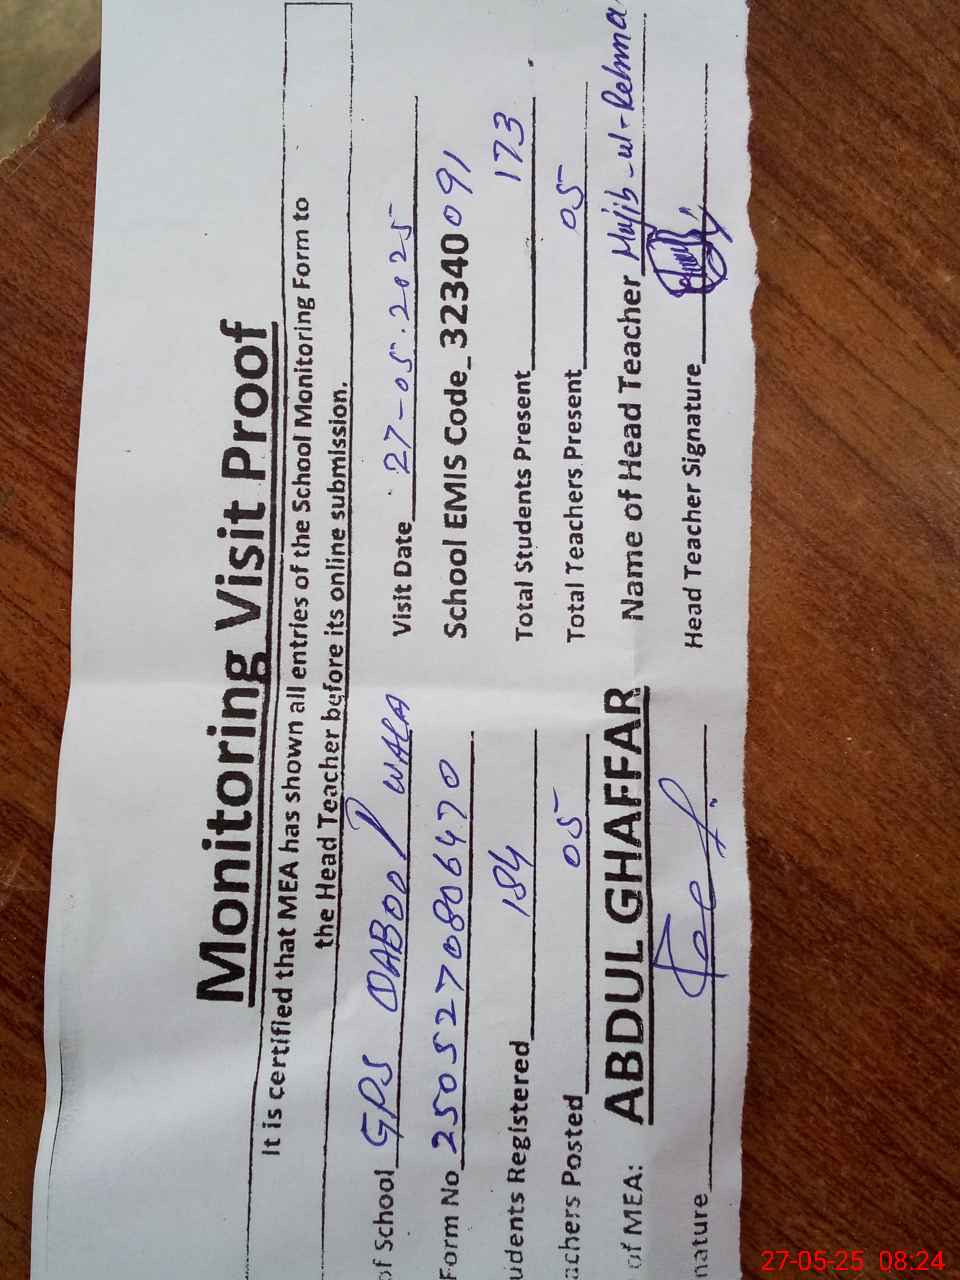 Monitoring Visit Proof
It is certified that MEA has shown all entries of the School Monitoring Form to
the Head Teacher before its online submission.
of School GPS QABOOL WALA Visit Date 27-05-2025
Form No 2505270806470 School EMIS Code_32340091
udents Registered 184 Total Students Present 173
achers Posted 05 Total Teachers Present 05
of MEA: ABDUL GHAFFAR Name of Head Teacher Mujib-ul-Rehma
nature Head Teacher Signature
27-05-25 08:24